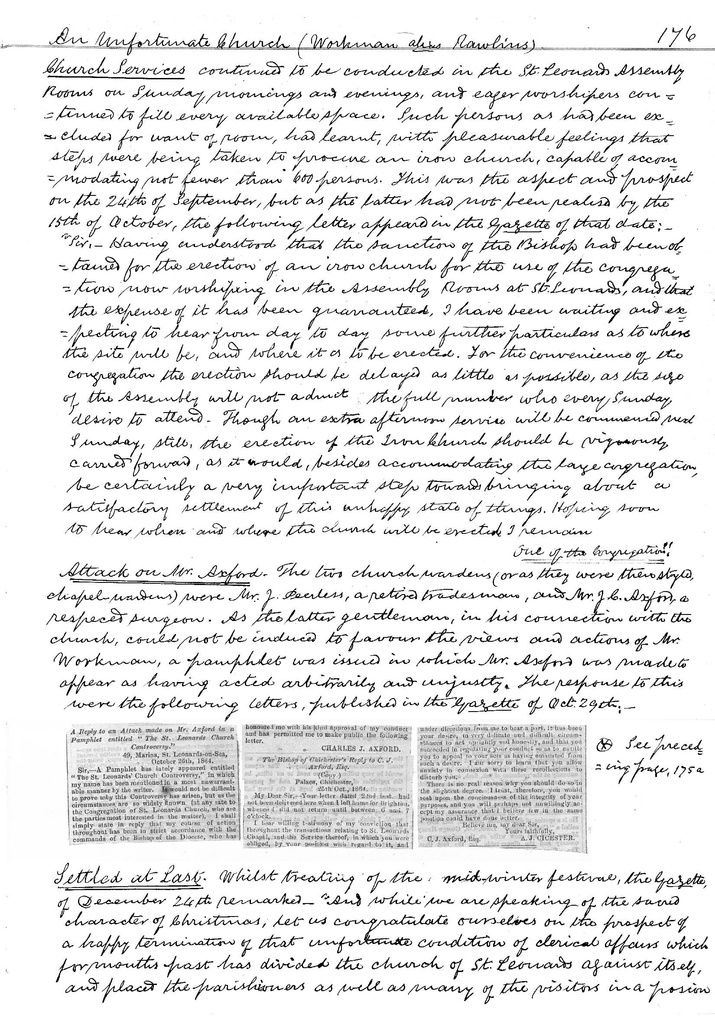 An Unfortunate Church (Workman alias Rawlins) 176
Church Services continued to be conducted in the St. Leonards Assembly
Rooms on Sunday mornings and evenings, and eager worshipers con=
=tinued to fill every available space. Such persons as had been ex=
=cluded for want of room, had learnt, with pleasurable feelings that
steps were being taken to procure an iron church, capable of accom=
=modating not fewer than 600 persons. This was the aspect and prospect
on the 24th of September, but as the latter had not been realised by the
15th of October, the following letter appeared in the Gazette of that date:-
"Sir,- Having understood that the sanction of the Bishop had been ob=
=tained for the erection of an iron church for the use of the congrega=
=tion now worshiping in the Assembly Rooms at St. Leonards, and that
the expense of it has been guarranteed, I have been waiting and ex=
=pecting to hear from day to day some further particulars as to where
the site will be, and where it is to be erected. For the convenience of the
congregation the erection should be delayed as little as possible, as the size
of the Assembly will not admit the full number who every Sunday
desire to attend. Though an extra afternoon service will be commenced next
Sunday, still, the erection of the Iron Church should be vigorously
carried forward, as it would, besides accommodating the large congregation,
be certainly a very important step towards bringing about a
satisfactory settlement of this unhappy state of things. Hoping soon
to hear when and where the church will be erected I remain
One of the Congregation"
Attack on Mr. Axford. The two church wardens (or as they were then styled,
chapel-wardens) were Mr. J. Peerless, a retired tradesman, and Mr. J. C. Axford, a
respeced surgeon. As the latter gentleman, in his connection with the
church, could not be induced to favour the views and actions of Mr.
Workman, a pamphlet was issued in which Mr. Axford was made to
appear as having acted arbitrarily and unjustly. The response to this
were the following letters, published in the Gazette of Oct. 29th:-
A Reply to an Attack made on Mr. Axford in a
Pamphlet entitled "The St. Leonards Church
Controversy."
49, Marina, St. Leonards-on-Sea,
October 26th, 1864.
Sir,—A Pamphlet has lately appeared entitled
"The St. Leonards Church Controversy," in which
my name has been mentioned in a most unwarrant-
able manner by the writer. It would not be difficult
to prove why this Controversy has arisen, but as the
circumstances are so widely known (at any rate to
the Congregation of St. Leonards Church, who are
the parties most interested in the matter), I shall
simply state in reply that my course of action
throughout has been in strict accordance with the
commands of the Bishop of the Diocese, who has
honoured me with his kind approval of my conduct
and has permitted me to make public the following
letter.
CHARLES J. AXFORD.
The Bishop of Chichester's Reply to C. J.
Axford, Esq.
(Copy)
Palace, Chichester,
25th Oct., 1864.
My Dear Sir,—Your letter dated 22nd had not
been delivered here when I left home for Brighton,
whence I did not return until between 6 and 7
o'clock.
I bear willing testimony of my conviction that
throughout the transactions relating to St. Leonards
Chapel, and the Service thereof, in which you were
obliged, by your position with regard to it, and
under directions from me to bear a part, it has been
your desire, in very delicate and difficult circum-
stances to act uprightly and honestly, and that you
succeeded in regulating your conduct so as to entitle
you to appeal to your acts as having emanated from
such a desire. I am sorry to learn that you allow
anxiety in connexion with these recollections to
disquiet you.
There is no real reason why you should do so in
the slightest degree. I trust, therefore, you would
rest upon the consciousness of the integrity of your
purpose, and you will perhaps not unwillingly ac-
cept my assurance that I believe few in the same
position could have done better.
Believe me, my dear Sir,
Yours faithfully,
C. J. Axford, Esq. A. T. CICESTER.
See preced
=ing page, 175a
Settled at Last. Whilst treating of the mid-winter festival, the Gazette,
of December 24th remarked — "And while we are speaking of the sacred
character of Christmas, let us congratulate ourselves on the prospect of
a happy termination of that unfortunate condition of clerical affairs which
for months past has divided the church of St. Leonards against itself,
and placed the parishioners as well as many of the visitors in a posion